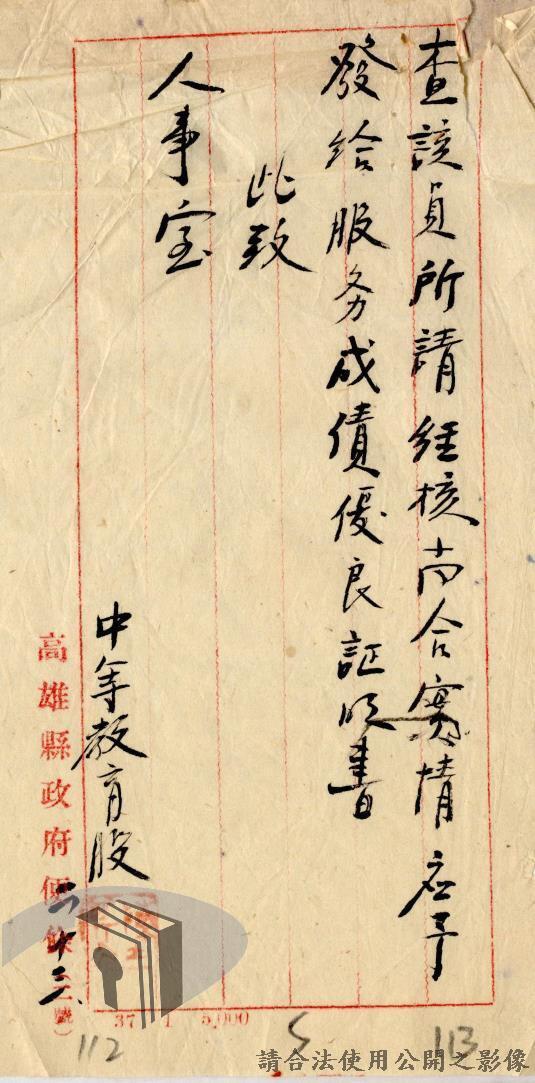 查該員所請經核尚合實情应予
發給服务成績優良証明書
此致
人事室
中等教育股
六十三
高雄縣政府便條
37 4 5,000
112
5
113
請合法使用公開之影像